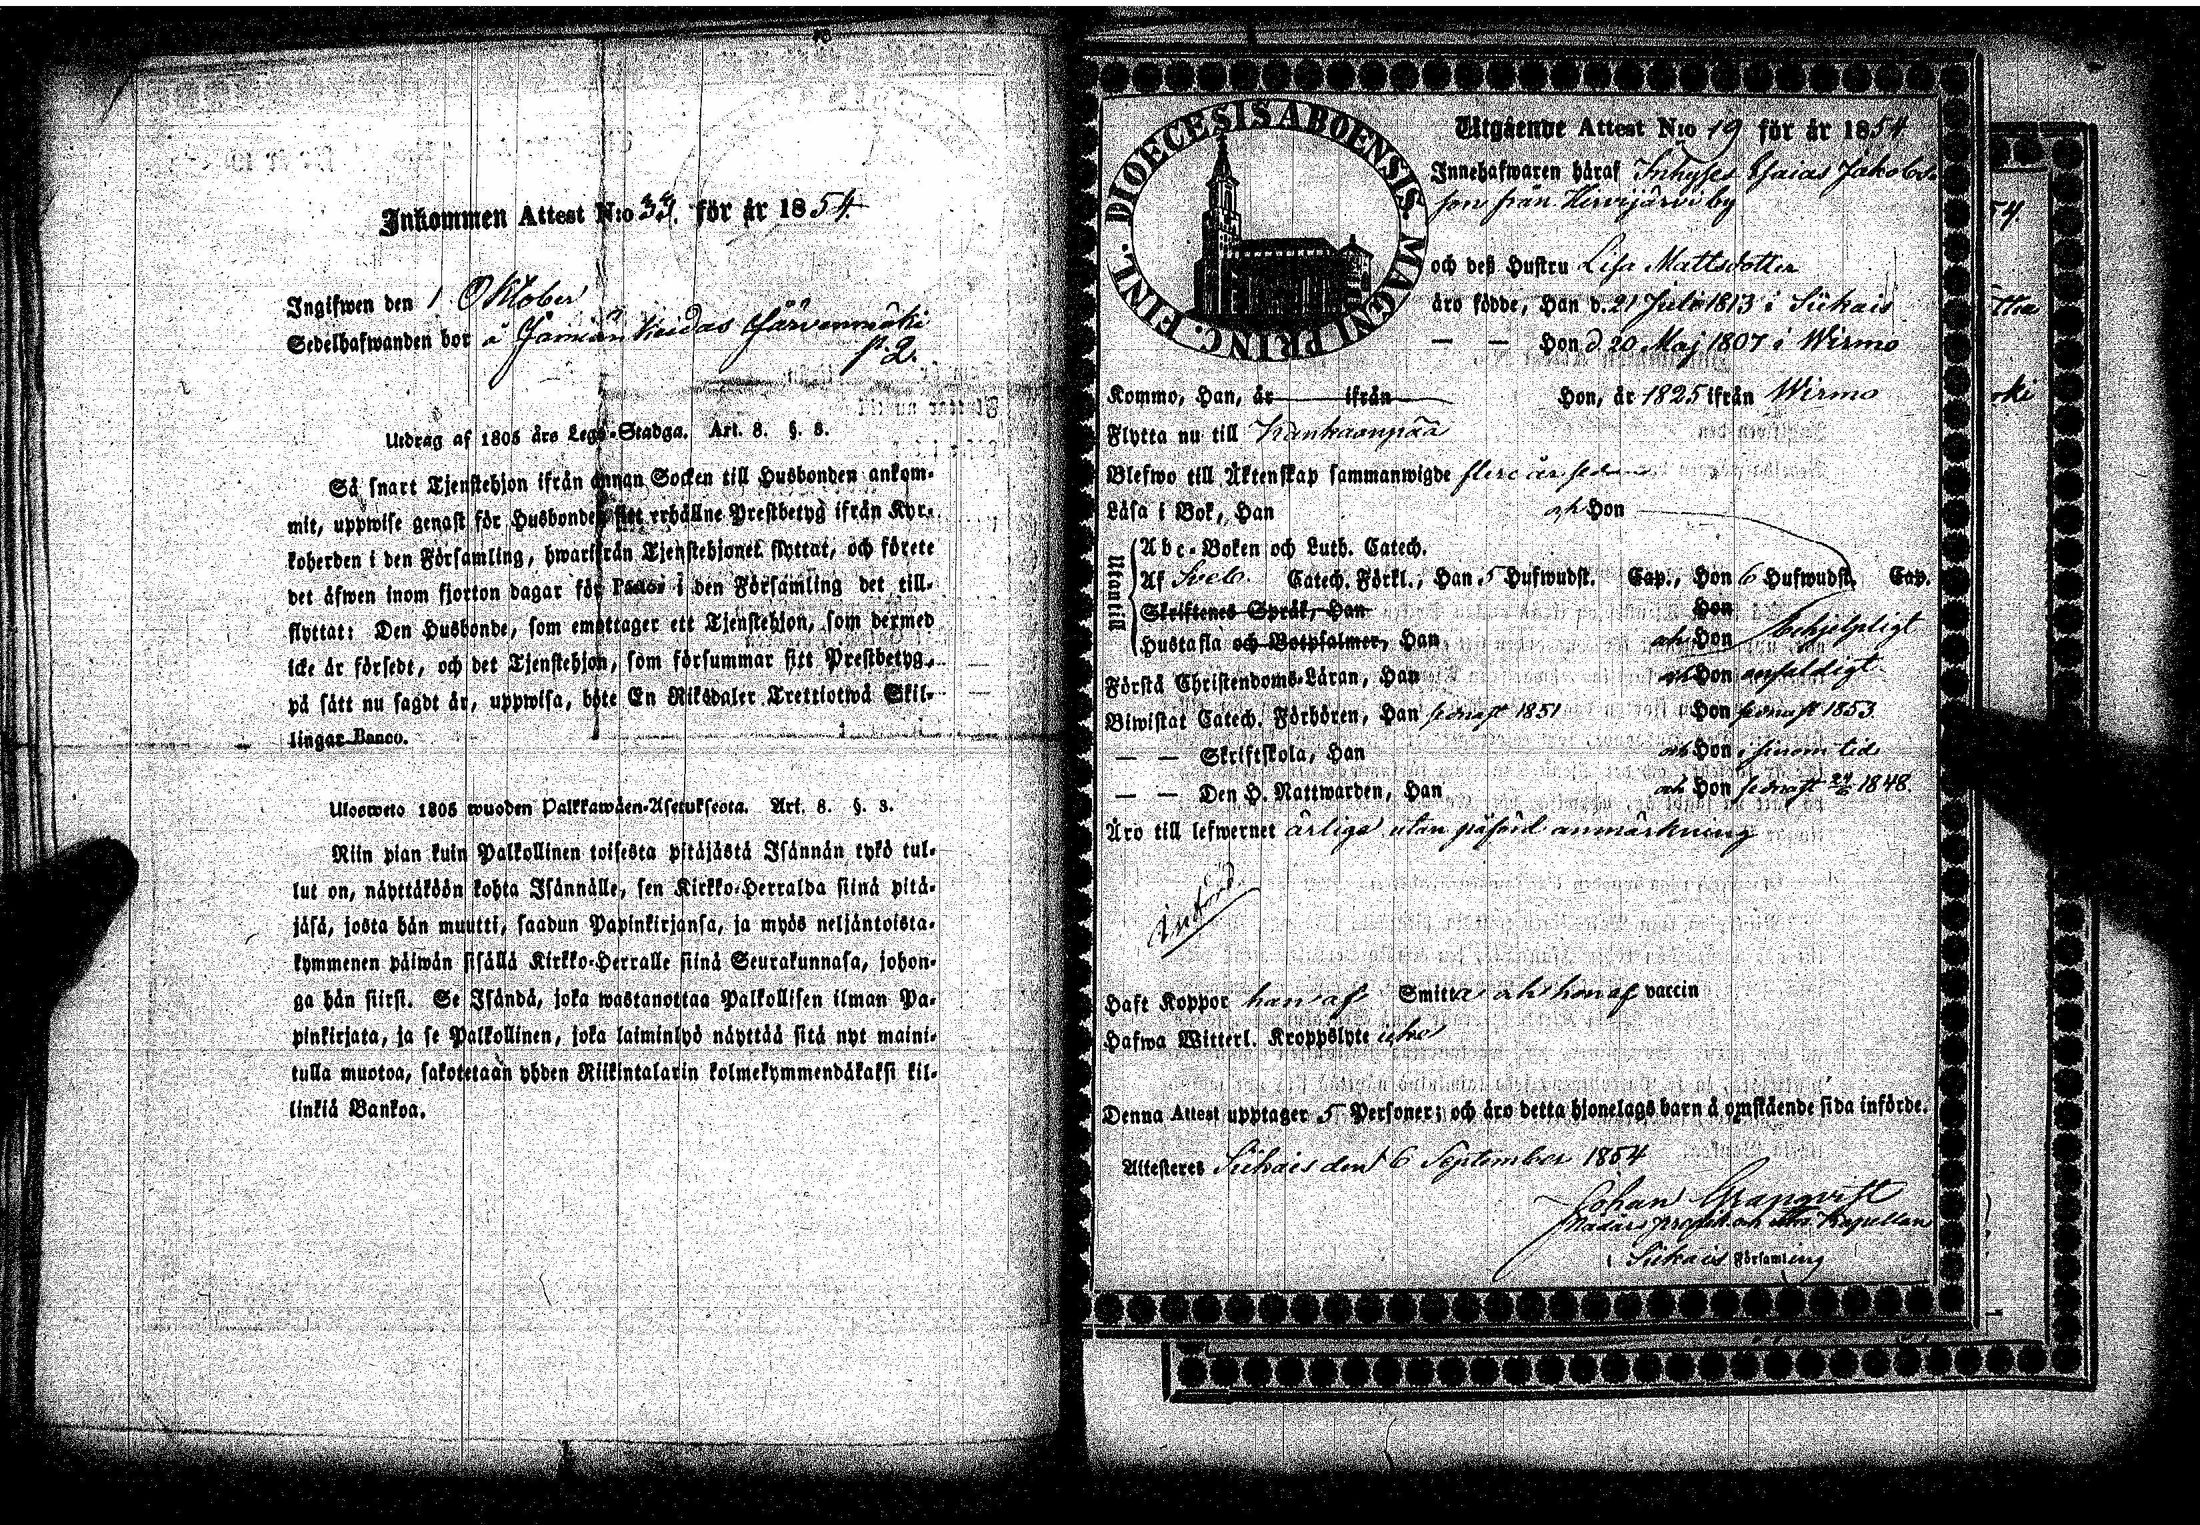 Inkommen Attest N:o 34. för år 1854.
Ingifwen den 1 Oktober
Sedelhafwanden bor å Jämiän Keidas Järvenmäki
p. 2.
Utdrag af 1805 års Lego-Stadga. Art. 8. §. 8.
Så snart Tjenstehjon ifrån annan Socken till Husbonden ankom-
mit, uppwise genast för Husbonden sitt erhållne Prestbetyg ifrån Kyr-
koherden i den Församling, hwarifrån Tjenstehjonet flyttat, och förete
det äfwen inom fjorton dagar för Pastor i den Församling det till-
flyttat: Den Husbonde, som emottager ett Tjenstehjon, som dermed
icke är försedt, och det Tjenstehjon, som försummar sitt Prestbetyg,
på sätt nu sagdt är, uppwisa, böte En Riksdaler Trettiotwå Skil-
lingar Banco.
Ulosweto 1805 wuoden Palkkawäen-Asetuksesta. Art. 8. §. 8.
Niin pian kuin Palkollinen toisesta pitäjästä Isännän tykö tul-
lut on, näyttäköön kohta Isännälle, sen Kirkko-Herralda siinä pitä-
jäsä, josta hän muutti, saadun Papinkirjansa, ja myös neljäntoista-
kymmenen päiwän sisällä Kirkko-Herralle siinä Seurakunnasa, johon-
ga hän siirst. Se Isändä, joka wastanottaa Palkollisen ilman Pa-
pinkirjata, ja se Palkollinen, joka laiminlyö näyttää sitä nyt maini-
tulla muotoa, sakotetaan yhden Riikintalarin kolmekymmendäkaksi kil-
linkiä Bankoa.
DIOECESIS ABOENSIS. MAGNI PRINC. FINL.
Utgående Attest N:o 19 för år 1854
Innehafwaren häraf Inhyses Esaias Jakobs-
son från Hirvijärvi by
och deß Hustru Lisa Mattsdotter
äro födde, Han d. 21 Juli 1813 i Siikais
— — Hon d. 20 Maj 1807 i Wirmo
Kommo, Han, år ifrån Hon, år 1825 ifrån Wirmo
Flytta nu till Kankaanpää
Blefwo till Äktenskap sammanwigde flere år sedan
Läsa i Bok, Han och Hon
Utantill
Abc-Boken och Luth. Catech.
Af Sveb. Catech. Förkl., Han 5 Hufwudst. Cap., Hon 6 Hufwudst. Cap.
Skriftenes Språk, Han Hon
Hustafla och Botpsalmer, Han och Hon behjelpligt
Förstå Christendoms-Läran, Han och Hon enfaldigt
Biwistat Catech. Förhören, Han sednast 1851 Hon sednast 1853.
— — Skriftskola, Han och Hon i sinom tid
— — Den H. Nattwarden, Han och Hon sednast 24/6 1848.
Äro till lefwernet ärliga utan påförd anmärkning
Införd
Haft Koppor han af Smitta och hon af vaccin
Hafwa Witterl. Kroppslyte icke
Denna Attest upptager 5 Personer; och äro detta hjonelags barn å omstående sida införde.
Attesteres Siikais den 6 September 1854
Johan Granqvist
Nådårs predik. och Kapellan
i Siikais Församling